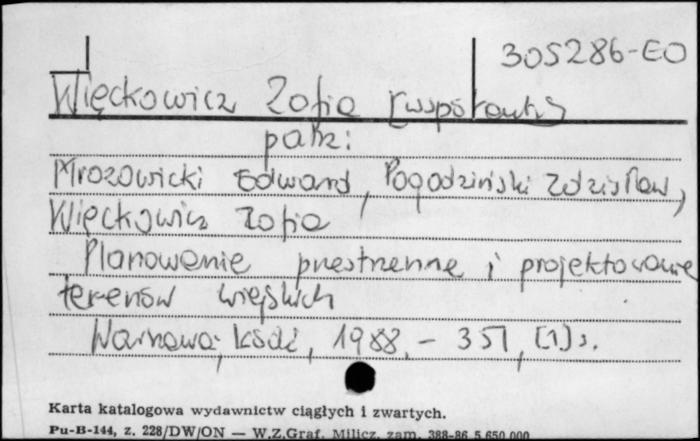 305286-EO
Więckowicz Zofia [współautor]
patrz:
Mrozowicki Edward, Pogodziński Zdzisław,
Więckowicz Zofia
Planowanie przestrzenne i projektowanie
terenów wiejskich
Warszawa; Łódź, 1988. - 351, [1] s.
Karta katalogowa wydawnictw ciągłych i zwartych.
Pu-B-144, z. 228/DW/ON — W.Z.Graf. Milicz, zam. 388-86 5 650 000